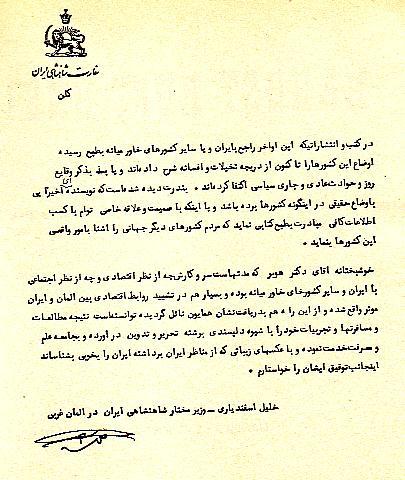 سفارت شاهنشاهی ایران
کلن
در کتب و انتشاراتیکه این اواخر راجع بایران و یا سایر کشورهای خاور میانه بطبع رسیده
اوضاع این کشورها را تا کنون از دریچه تخیلات و افسانه شرح داده‌اند و یا بسه بذکر وقایع
روز و حوادث عادی و جاری سیاسی اکتفا کرده‌اند ۰ بندرت دیده شده است که نویسنده ای اخیرا پی
باوضاع حقیقی در اینگونه کشورها برده باشد و با اینکه با صمیمیت و علاقه خاصی توام با کسب
اطلاعات کافی مبادرت بطبع کتابی نماید که مردم کشورهای دیگر جهانی را آشنا بامور واقعی
این کشورها بنماید ۰
خوشبختانه آقای دکتر هوبر که مدتهاست سر و کارش چه از نظر اقتصادی و چه از نظر اجتماعی
با ایران و سایر کشورهای خاور میانه بوده و بسیار هم در تشیید روابط اقتصادی بین المان و ایران
موثر واقع شده و از این راه هم بدریافت نشان همایون نائل گردیده توانسته است نتیجه مطالعات
و مسافرتها و تجربیات خود را با شیوه دلپسندی برشته تحریر و تدوین در آورده و بجامعه علم
و معرفت خدمت نموده و با عکسهای زیبائی که از مناظر ایران برداشته ایران را بخوبی بشناساند
اینجانب توفیق ایشان را خواستارم ۰
خلیل اسفندیاری ــ وزیر مختار شاهنشاهی ایران در المان غربی